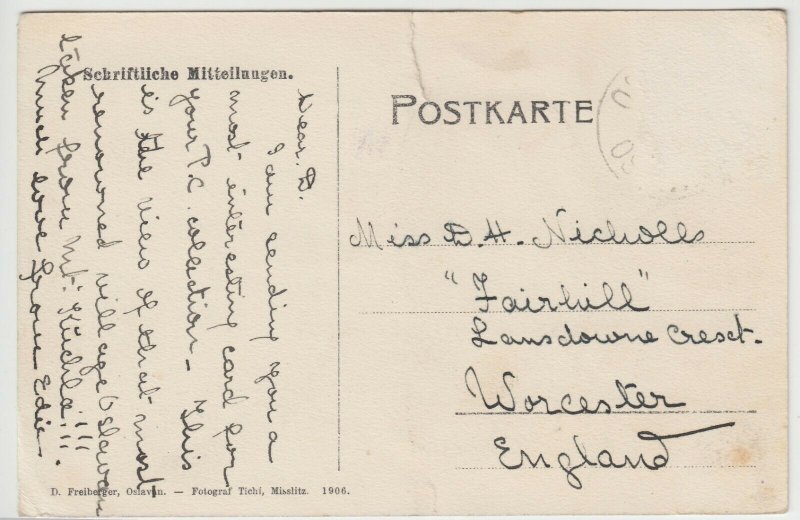 Schriftliche Mitteilungen.
POSTKARTE
Dear. D.
I am sending you a
most interesting card for
your P.C. collection - This
is the view of that most
renowned village Oslavan
taken from Mt: Kuchla!!!
Much love from Edie.
Miss D. H. Nicholls
"Fairhill"
Lansdowne Cresct.
Worcester
England
D. Freiberger, Oslavan. — Fotograf Tichi, Misslitz. 1906.